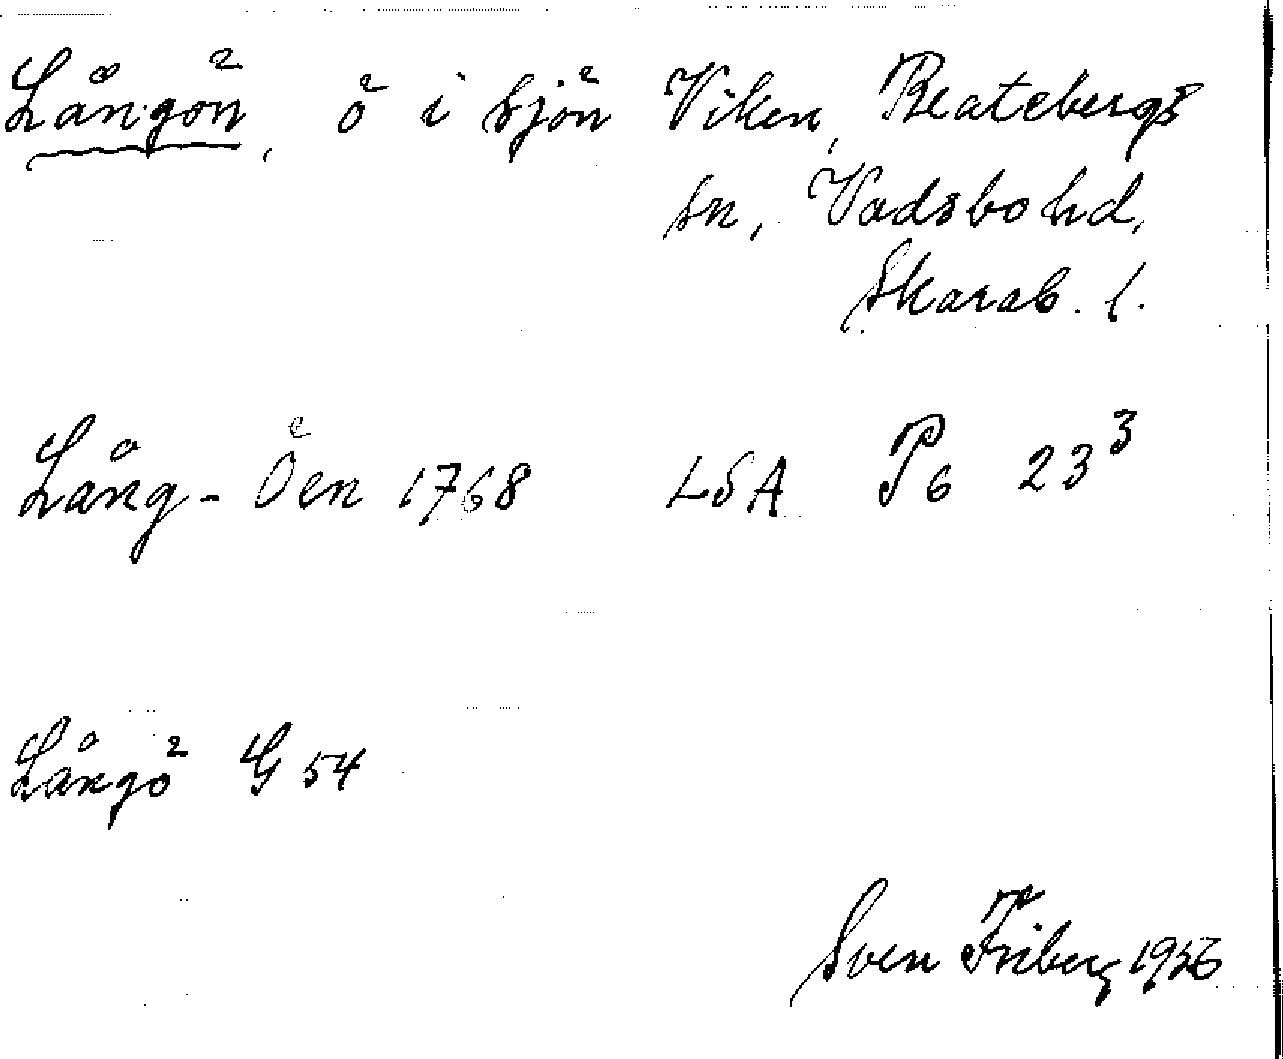 Långön, ö i sjön Viken, Beatebergs
sn, Vadsbo hd,
Skarab. l.
Lång-Öen 1768 LSA P6 23³
Långö G 54
Sven Friberg 1956